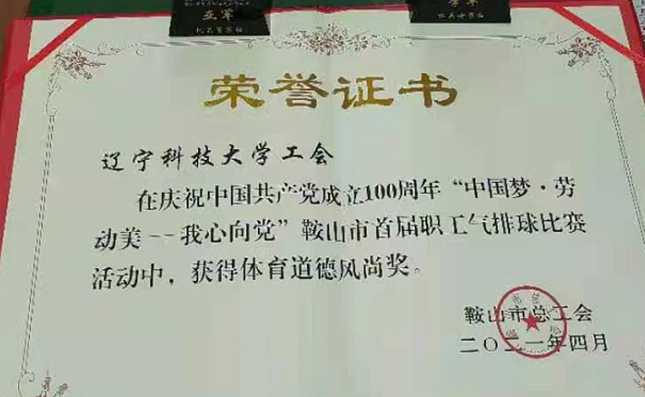 亚军
季军
荣誉证书
辽宁科技大学工会
在庆祝中国共产党成立100周年“中国梦·劳
动美--我心向党”鞍山市首届职工气排球比赛
活动中，获得体育道德风尚奖。
鞍山市总工会
二〇二一年四月